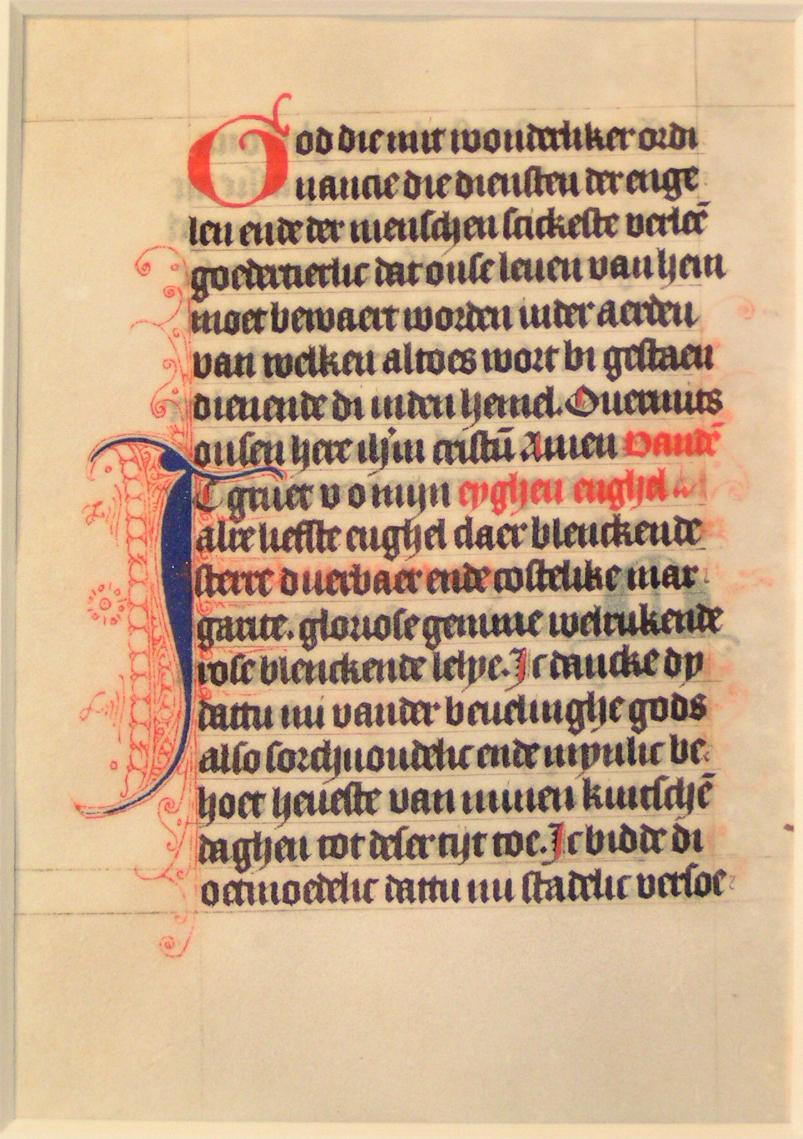 God die mit wonderliker ordi
nancie die diensten der enge
len ende der menschen scickeste verleē
goedertierlic dat onse leuen van hem
moet bewaert worden inder aerden
van welken altoes wort bi gestaen
dienende di inden hemel. Ouermits
onsen here ihm cristū Amen Vandē
IC gruet v o mijn eyghen enghel
alre liefste enghel daer blenckende
sterre duerbaer ende costelike mar
garite. gloriose gemme welrukende
rose blenckende lelye. Ic dancke dy
dattu mi vander beuelinghe gods
also sorchuoudelic ende mynlic be
hoet heueste van minen kintschē
daghen tot deser tijt toe. Ic bidde di
oetmoedelic dattu mi stadelic versoe